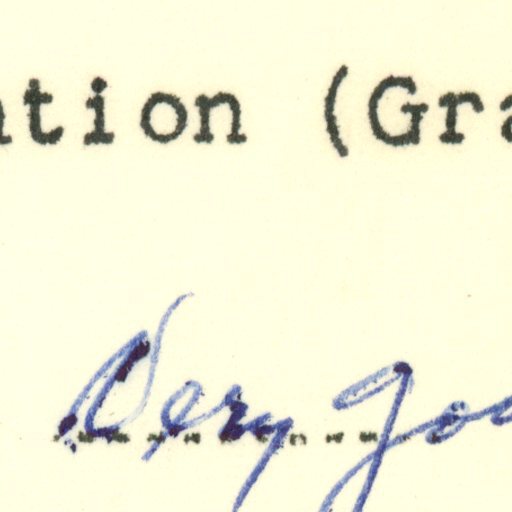 ation (Gra
Very goo